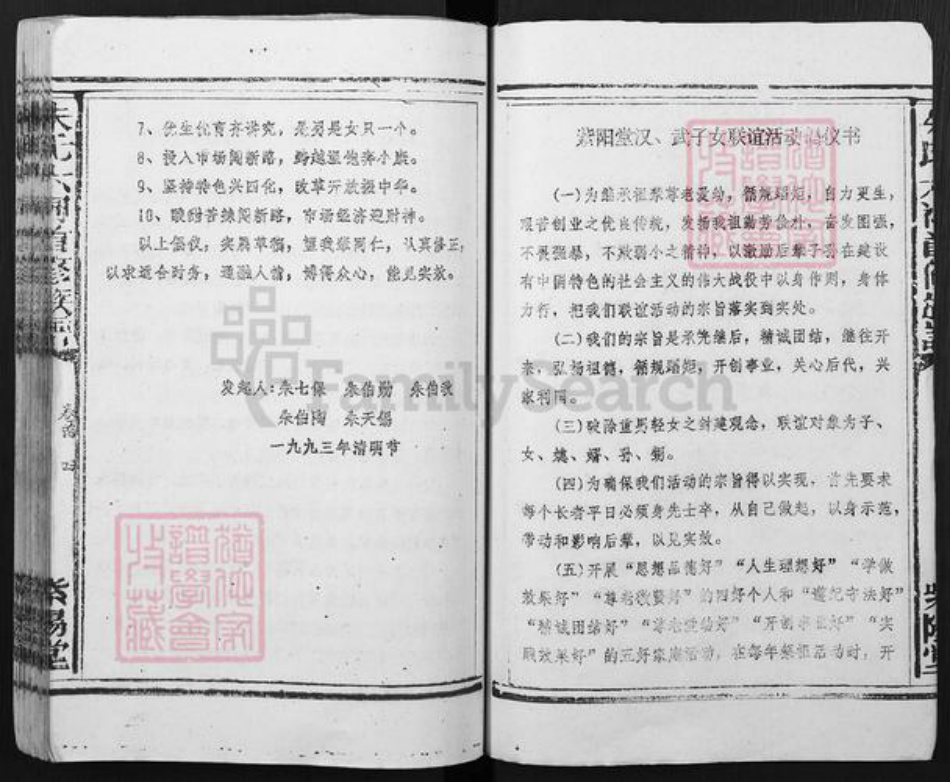 7、优生优育齐讲究，是男是女只一个。
8、投入市场闯新路，跨越温饱奔小康。
9、坚持特色兴四化，改革开放振中华。
10、艰酣苦练闯新路，市场经济迎财神。
以上倡仪，实属草稿，望我辈同仁，认真修正，
以求适合时务，通融人情，博得众心，能见实效。
发起人：朱七保 朱伯勋 朱伯
朱伯陶 朱天锡
一九九三年清明节
卷首
紫阳堂
紫阳堂汉、武子女联谊活动倡仪书
(一)为继承祖宗尊老爱幼，循规蹈矩，自力更生，
艰苦创业之优良传统，发扬我祖勤劳俭朴，奋发图强，
不畏强暴，不欺弱小之精神，以激励后辈子孙在建设
有中国特色的社会主义的伟大战役中以身作则，身体
力行，把我们联谊活动的宗旨落实到实处。
(二)我们的宗旨是承先继后，精诚团结，继往开
来，弘扬祖德，循规蹈矩，开创事业，关心后代，兴
家利国。
(三)破除重男轻女之封建观念，联谊对象为子、
女、媳、婿、孙、甥。
(四)为确保我们活动的宗旨得以实现，首先要求
每个长者平日必须身先士卒，从自己做起，以身示范，
带动和影响后辈，以见实效。
(五)开展“思想品德好”“人生理想好”“学做
效果好”“尊老敬贤好”的四好个人和“遵纪守法好”
“精诚团结好”“尊老爱幼好”“开创事业好”“实
践效果好”的五好家庭活动，在每年祭祖活动时，开
紫阳堂
FamilySearch